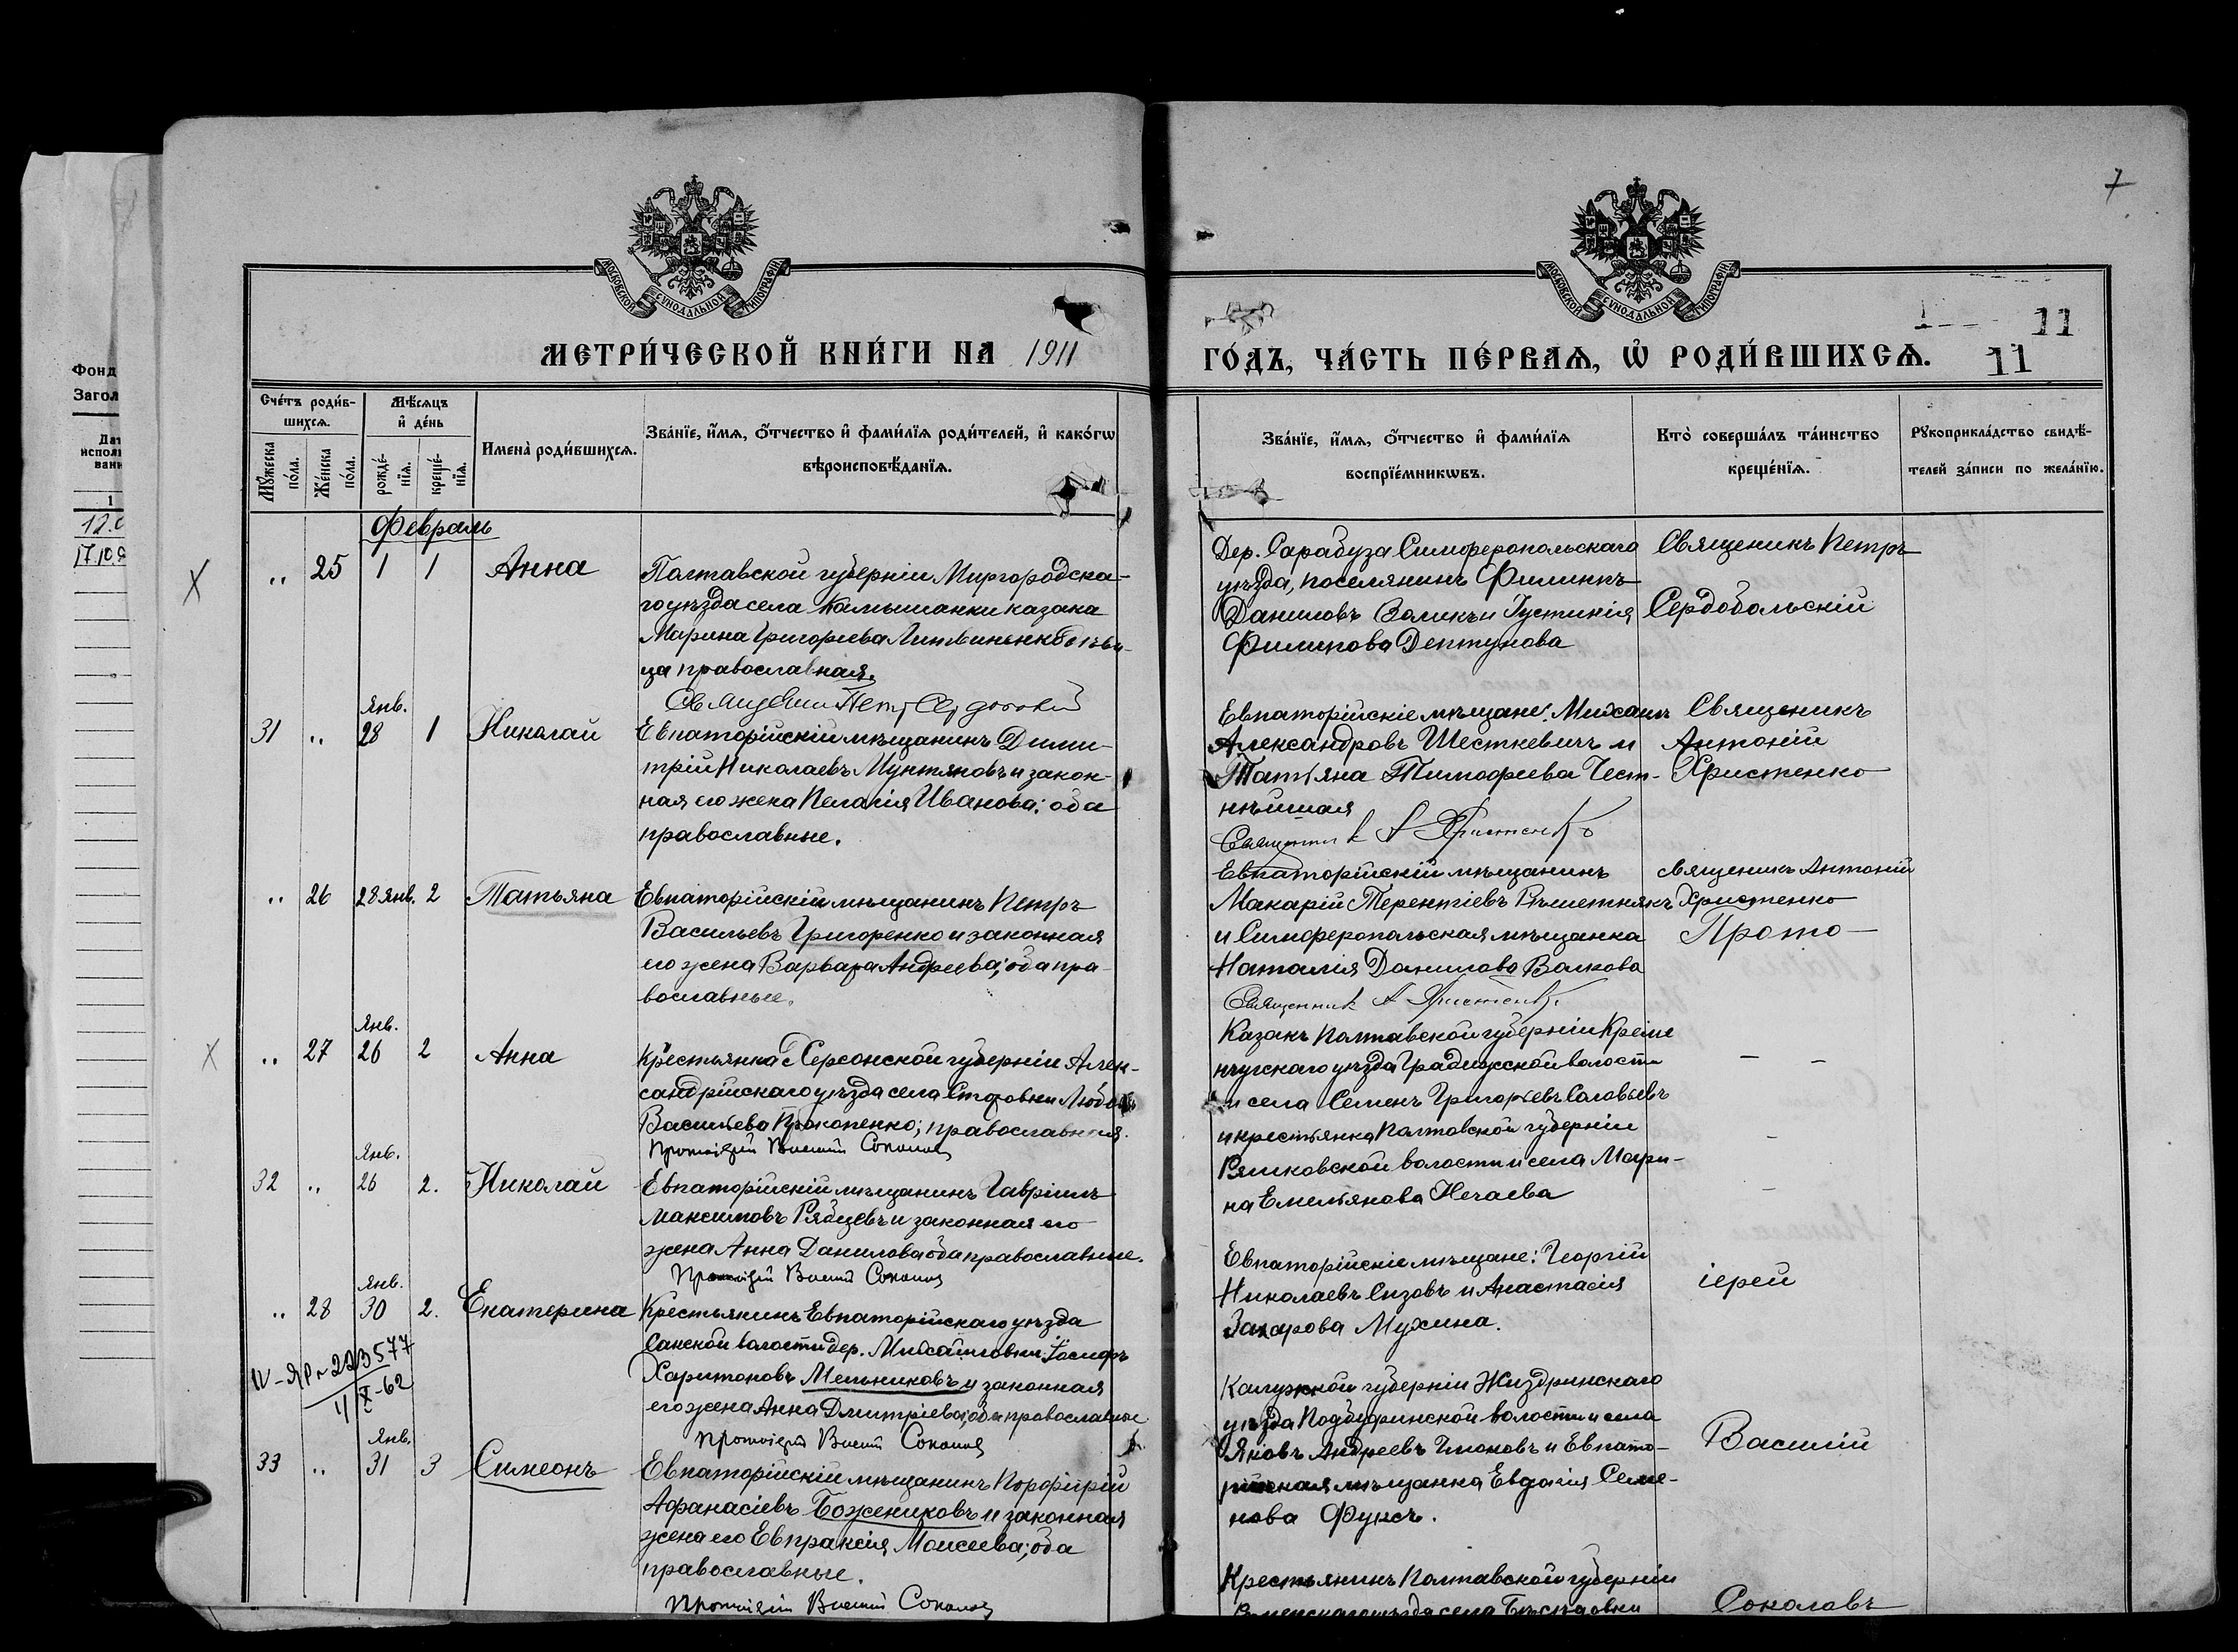 7
МОСКОВСКОЙ СѴНОДАЛЬНОЙ ТИПОГРАФІИ
МОСКОВСКОЙ СѴНОДАЛЬНОЙ ТИПОГРАФІИ
11
11
МЕТРИ́ЧЕСКОЙ КНИ́ГИ НА 1911
ГО́ДЪ, ЧА́СТЬ ПЕ́РВАѦ, Ѡ҆ РОДИ́ВШИХСѦ.
Фонд
Загол
Счетъ роди́в-
шихсѧ.
Мꙋжеска по́ла.
Же́нска по́ла.
Мѣ́сѧцъ
и҆ де́нь
рожде́-нїѧ.
креще́-нїѧ.
Имена̀ роди́вшихсѧ.
Зва́нїе, и҆́мѧ, ѻ҆́тчество и҆ фами́лїѧ роди́телей, и҆ како́гѡ
вѣроисповѣ́данїѧ.
Зва́нїе, и҆́мѧ, ѻ҆́тчество и҆ фами́лїѧ
воспрїе́мникѡвъ.
Кто̀ соверша́лъ та́инство
креще́нїѧ.
Рꙋкоприкла́дство свидѣ́-
телей за́писи по жела́нїю.
1
12.
17.10.
Февраль
" 25 1 1 Анна
Полтавской губерніи Миргородска-
го уѣзда села Камышанки казака
Марина Григорьева
ца православная.
Дер. Сарабуза Симферопольскаго
уѣзда, поселянинъ Филиппъ
Даниловъ Воликъ и Іустинія
Филипова Дептунова
Священикъ Петръ
Сердобольскій
Янв.
31 " 28 1 Николай
Евпаторійскій мѣщанинъ Дими-
трій Николаевъ Мунтяновъ и закон-
ная его жена Пелагія Иванова; оба
православные.
Евпаторійскіе мѣщане: Михаилъ
Александровъ Шесткевичъ и
Татьяна Тимофеева Чест-
нѣйшая
Священник А Христенко
Священикъ
Антоній
Христенко
" 26 28 янв. 2 Татьяна
Евпаторійскій мѣщанинъ Петръ
Васильевъ Григоренко и законная
его жена Варвара Андреева; оба пра-
вославные.
Евпаторійскій мѣщанинъ
Макарій Терентіевъ Рѣшетнякъ
и Симферопольская мѣщанка
Наталія Данилова Волкова
Священник А Христенк
священикъ Антоній
Христенко
Прото-
Янв.
" 27 26 2 Анна
Крестьянка Херсонской губерніи Алек-
сандрійскаго уѣзда села Любовь
Васильева Прокопенко; православная.
Протоіерей Василій Соколов
Казакъ Полтавской губерніи Креме
нчугскаго уѣзда Градижской волости
и села Семенъ Григорьевъ Соловьевъ
и крестьянка Полтавской губерніи
волости и села Мари-
на Емельянова Нечаева
Янв.
32 " 26 2. Николай
Евпаторійскій мѣщанинъ Гавріилъ
Максимовъ Рябцевъ и законная его
жена Анна Данилова оба православные.
Протоіерей Василій Соколов
Евпаторійскіе мѣщане: Георгій
Николаевъ Сизовъ и Анастасія
Захарова Мухина.
іерей
Янв.
" 28 30 2. Екатерина
Крестьянинъ Евпаторійскаго уѣзда
Сакской волости дер. Михайловки Іосифъ
Харитоновъ Мельниковъ и законная
его жена Анна Дмитріева; оба православные
Протоіерей Василій Соколов
Калужской губерніи Жиздринскаго
уѣзда волости и села
Яковъ Андреевъ и Евпато-
рійская мѣщанка Евдокія Семе-
нова Фуксъ.
Василій
Янв.
33 " 31 3 Симеонъ
Евпаторійскій мѣщанинъ Порфирій
Афанасіевъ Божениковъ и законная
жена его Евпраксія Моисеева; оба
православные.
Протоіерей Василій Соколов
Крестьянинъ Полтавской губерніи
Соколовъ